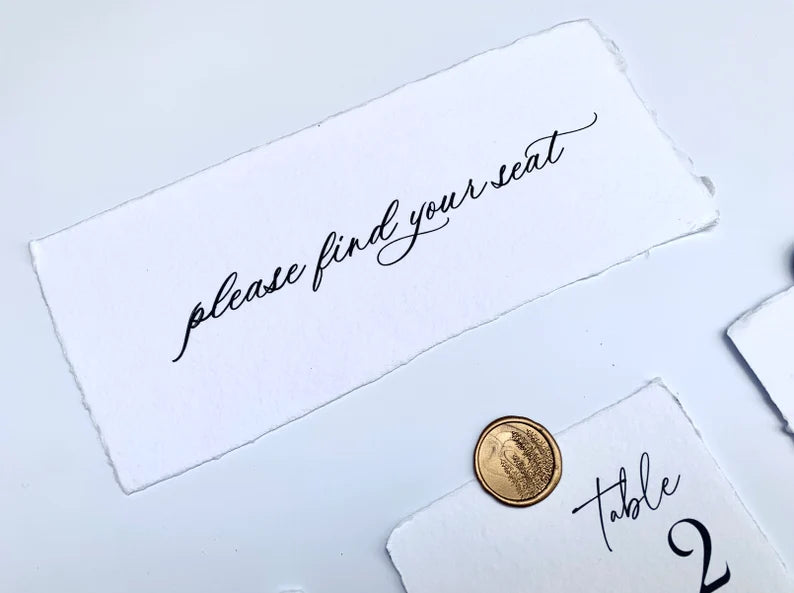 please find your seat
table
2